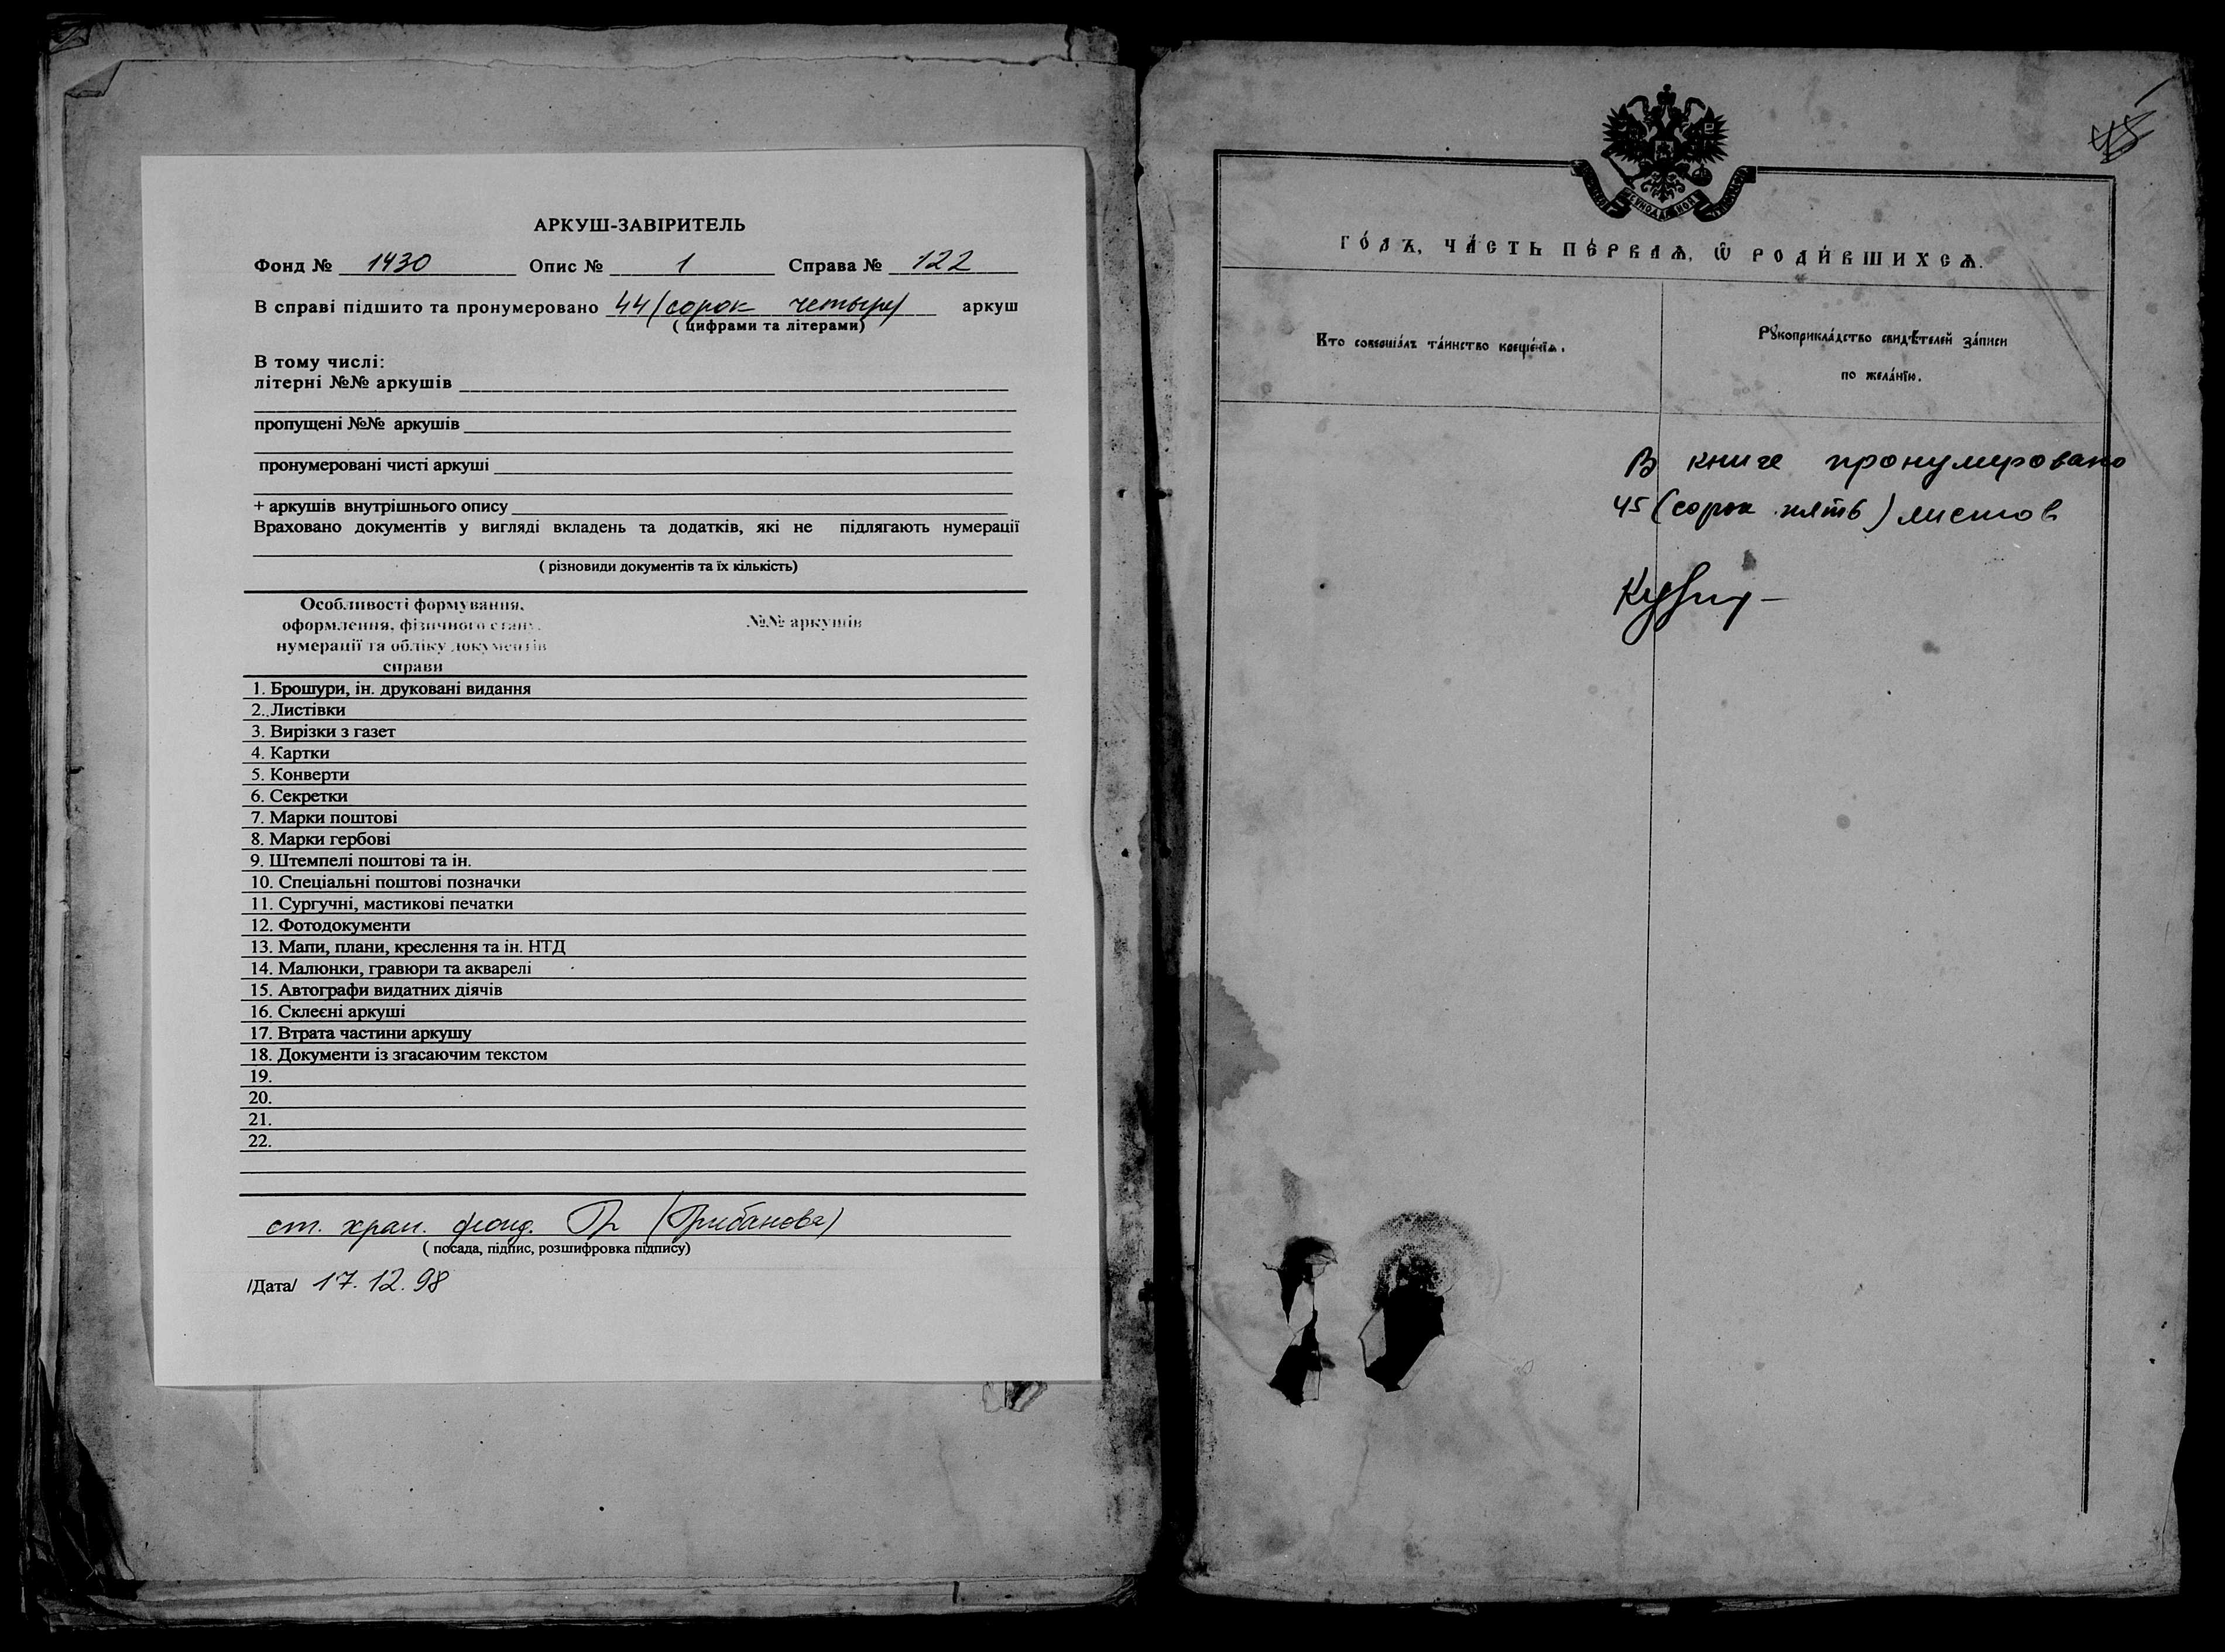 АРКУШ-ЗАВІРИТЕЛЬ
Фонд № 1430 Опис № 1 Справа № 122
В справі підшито та пронумеровано 44 (сорок четыре) аркуш
( цифрами та літерами)
В тому числі:
літерні №№ аркушів
пропущені №№ аркушів
пронумеровані чисті аркуші
+ аркушів внутрішнього опису
Враховано документів у вигляді вкладень та додатків, які не підлягають нумерації
( різновиди документів та їх кількість)
Особливості формування, №№ аркушів
оформлення, фізичного стану,
нумерації та обліку документів
справи
1. Брошури, ін. друковані видання
2. Листівки
3. Вирізки з газет
4. Картки
5. Конверти
6. Секретки
7. Марки поштові
8. Марки гербові
9. Штемпелі поштові та ін.
10. Спеціальні поштові позначки
11. Сургучні, мастикові печатки
12. Фотодокументи
13. Мапи, плани, креслення та ін. НТД
14. Малюнки, гравюри та акварелі
15. Автографи видатних діячів
16. Склеєні аркуші
17. Втрата частини аркушу
18. Документи із згасаючим текстом
19.
20.
21.
22.
ст. хран. фонд. (Грибанова)
( посада, підпис, розшифровка підпису)
/Дата/ 17.12.98
45
го́дъ, ча́сть пе́рваѧ, ѽ роди́вшихсѧ.
Кто соверша́лъ та́инство креще́нїѧ.
Рꙋкоприкла́дство свидѣ́телей за́писи
по жела́нїю.
В книге пронумеровано
45 (сорок пять) листов